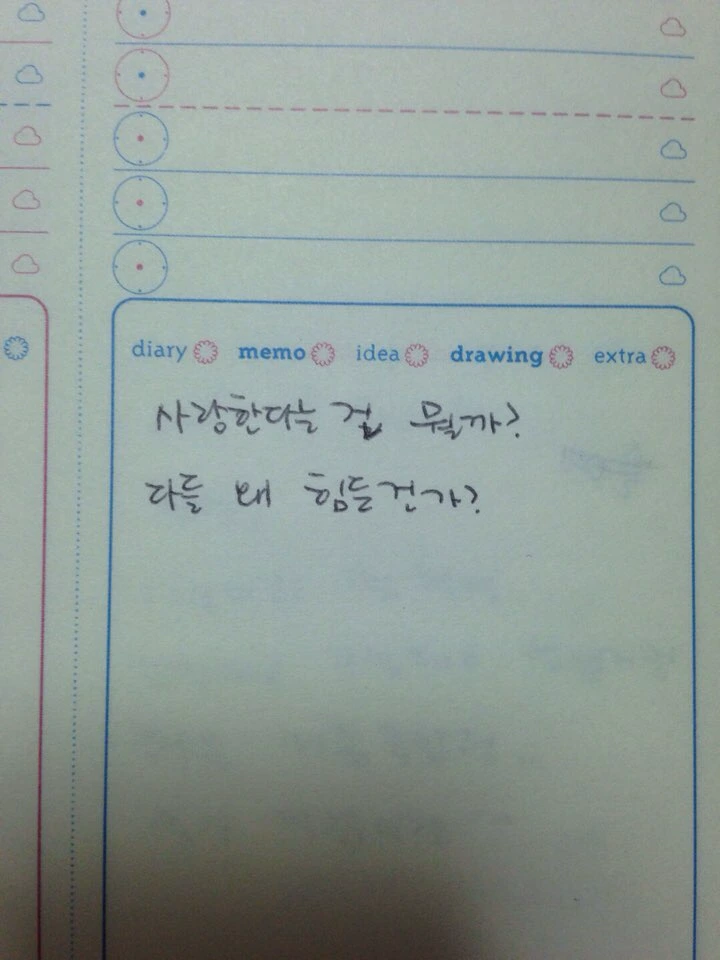 diary memo idea drawing extra
사랑한다는 걸 뭘까?
다들 왜 힘든건가?